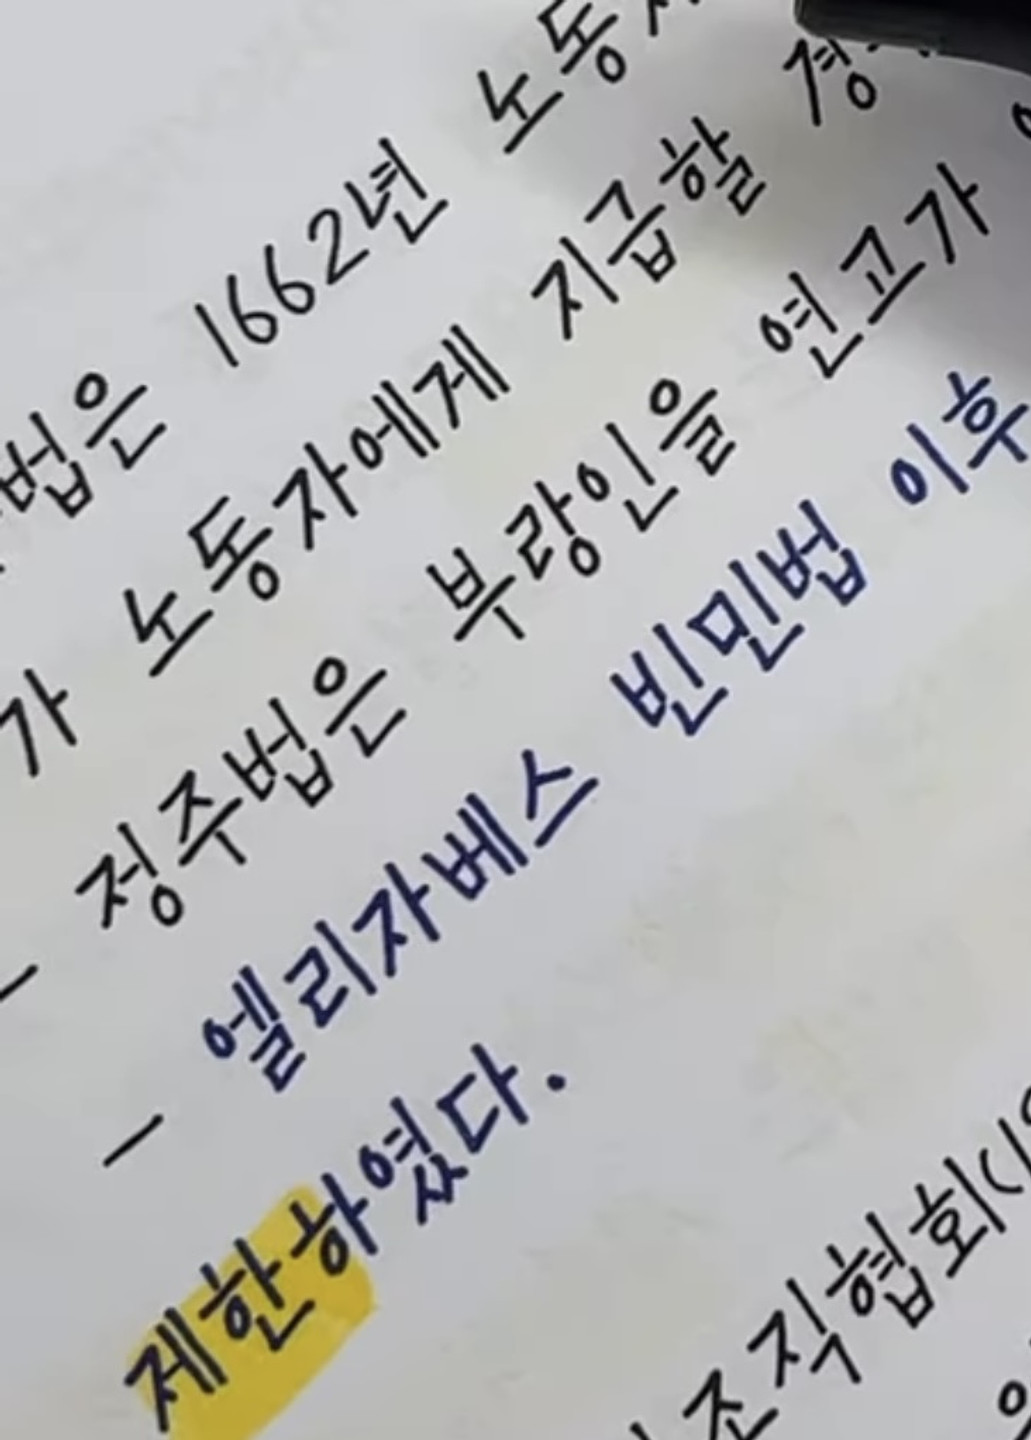 법은 1662년 노동
가 노동자에게 지급할 경
- 정주법은 부랑인을 연고가
- 엘리자베스 빈민법 이후
제한하였다.
조직협회(1